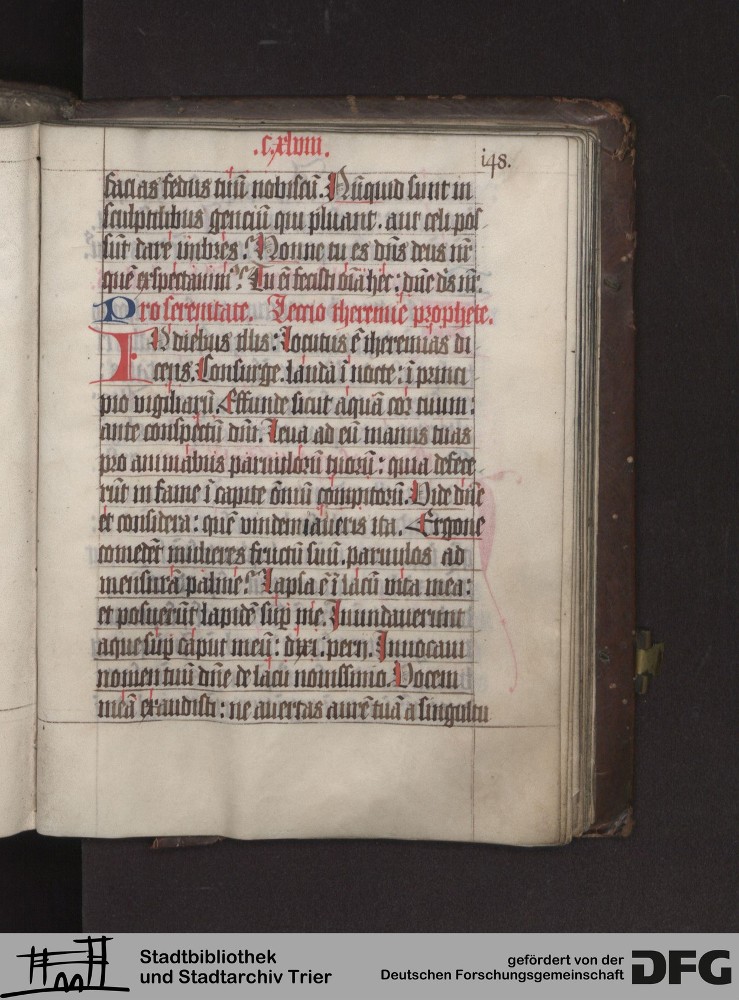 .c.xlviii.
148.
facias fedus tuū nobiscū. Nūquid sunt in
sculptilibus genciū qui pluant. aut celi pos
sūt dare imbres? Nonne tu es dn̄s deus nr̄
quē exspectauim9? Tu em̄ fecisti om̄ia hec: dn̄e ds̄ nr̄.
Pro serenitate. Leccio iheremie prophete.
IN diebus illis: Locutus ē iheremias di
cens. Consurge. lauda ī nocte: ī princi
pio vigiliarū. Effunde sicut aquā cor tuum:
ante conspectū dn̄i. Leua ad eū manus tuas
pro animabus paruulorū tuorū: quia defece
rūt in fame ī capite ōniū compitorū. Vide dn̄e
et considera: quē vindemiaueris ita. Ergone
comedēt mulieres fructū suū. paruulos ad
mensurā palme? Lapsa ē ī lacū vita mea:
et posuerūt lapidē sup me. Inundauerunt
aque sup caput meū: dixi: perij. Inuocaui
nomen tuū dn̄e de lacu nouissimo. Vocem
meā exaudisti: ne auertas aurē tuā a singultu
Stadtbibliothek
und Stadtarchiv Trier
gefördert von der
Deutschen Forschungsgemeinschaft
DFG